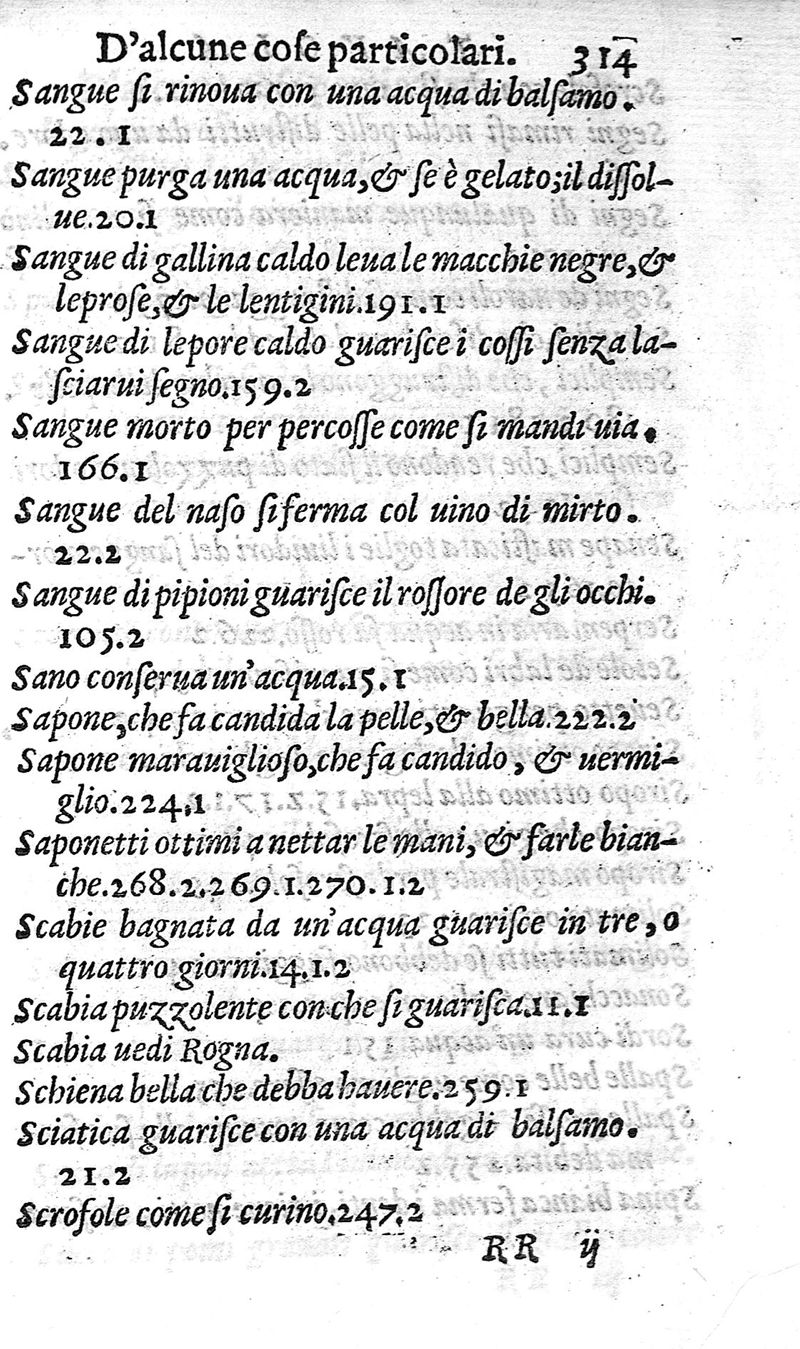 D'alcune coſe particolari. 314
Sangue ſi rinoua con una acqua di balſamo.
22.1
Sangue purga una acqua, & ſe è gelato; il diſſol-
ue. 20.1
Sangue di gallina caldo leua le macchie negre, &
leproſe, & le lentigini. 191.1
Sangue di lepore caldo guariſce i coſſi ſenza la-
ſciarui ſegno. 159.2
Sangue morto per percoſſe come ſi mandi uia.
166.1
Sangue del naſo ſi ferma col uino di mirto.
22.2
Sangue di pipioni guariſce il roſſore de gli occhi.
105.2
Sano conſerua un'acqua. 15.1
Sapone, che fa candida la pelle, & bella. 222.2
Sapone marauiglioſo, che fa candido, & uermi-
glio. 224.1
Saponetti ottimi a nettar le mani, & farle bian-
che. 268.2. 269.1. 270.1.2
Scabie bagnata da un'acqua guariſce in tre, o
quattro giorni. 14.1.2
Scabia puzzolente con che ſi guariſca. 11.1
Scabia uedi Rogna.
Schiena bella che debba hauere. 259.1
Sciatica guariſce con una acqua di balſamo.
21.2
Scrofole come ſi curino. 247.2
RR ij